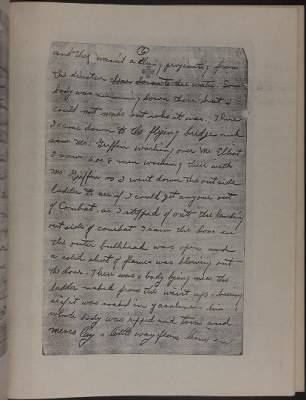 6
and they wasn't a thing projecting from
the director clear down to the water. Some
body was swimming down there but I
could not make out who it was. Then
I came down to the flying bridge and
saw Mr. Griffin working over Mr. Elliot
I saw 2 or 3 men working there with
Mr Griffin so I went down the outside
ladder to see if I could get anyone out
of Combat, as I stepped off onto the landing
outside of combat I saw the door in
the outer bulkhead was open and
a solid sheet of flames was blowing out
the door. There was a body lying near the
ladder naked from the waist up - burning
as if it was soaked in gasoline - his
whole body was ripped and torn and
messy. a little way from him